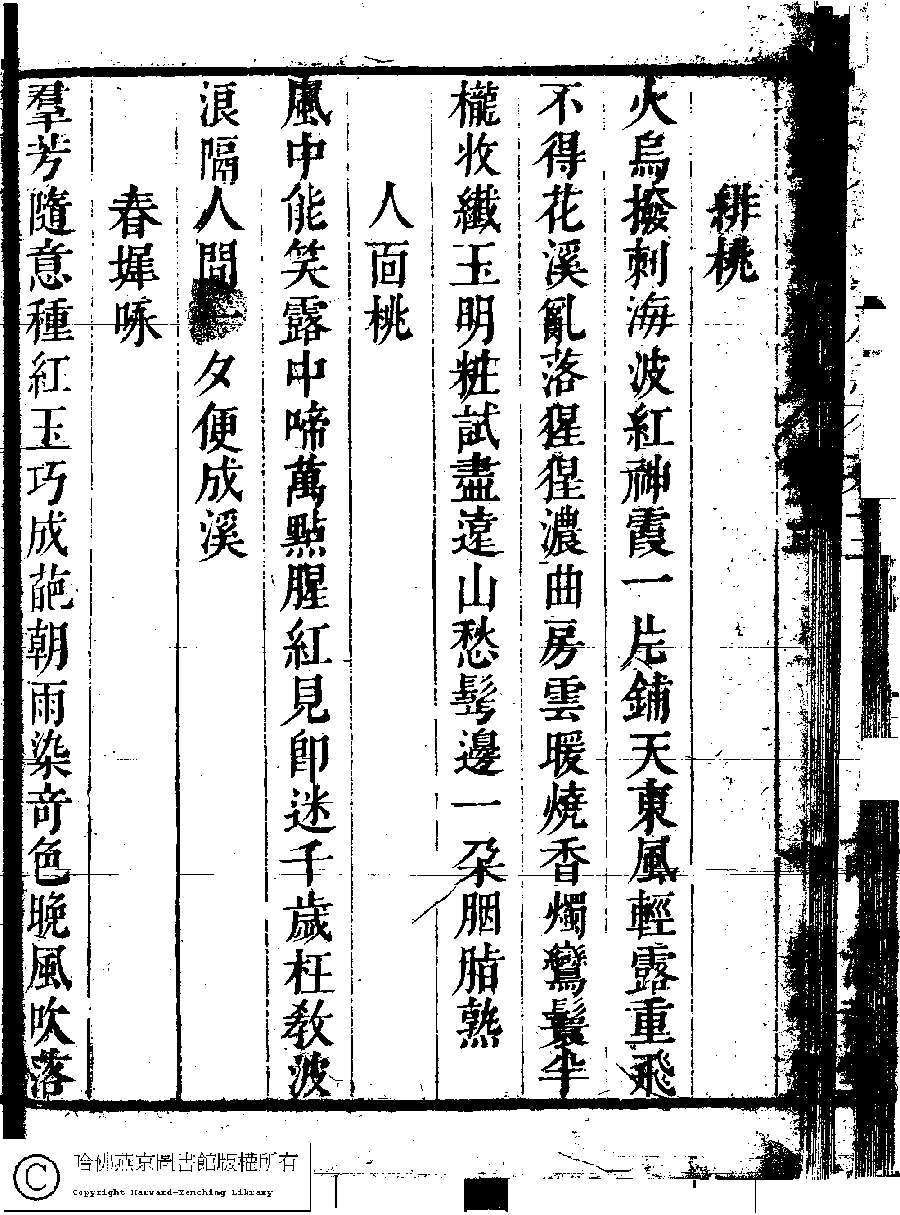 緋桃
火烏撥刺海波紅神霞一片鋪天東風輕露重飛
不得花溪亂落猩猩濃曲房雲暖燒香燭鸞鬟半
櫳收纖玉明粧試盡遠山愁髩邊一朶胭脂熟
人面桃
風中能笑露中啼萬點腥紅見卽迷千歲枉敎波
浪隔人間一夕便成溪
春墀咏
羣芳隨意種紅玉巧成葩朝雨染奇色晚風吹落
哈佛燕京圖書館版權所有
Copyright Harvard-Yenching Library